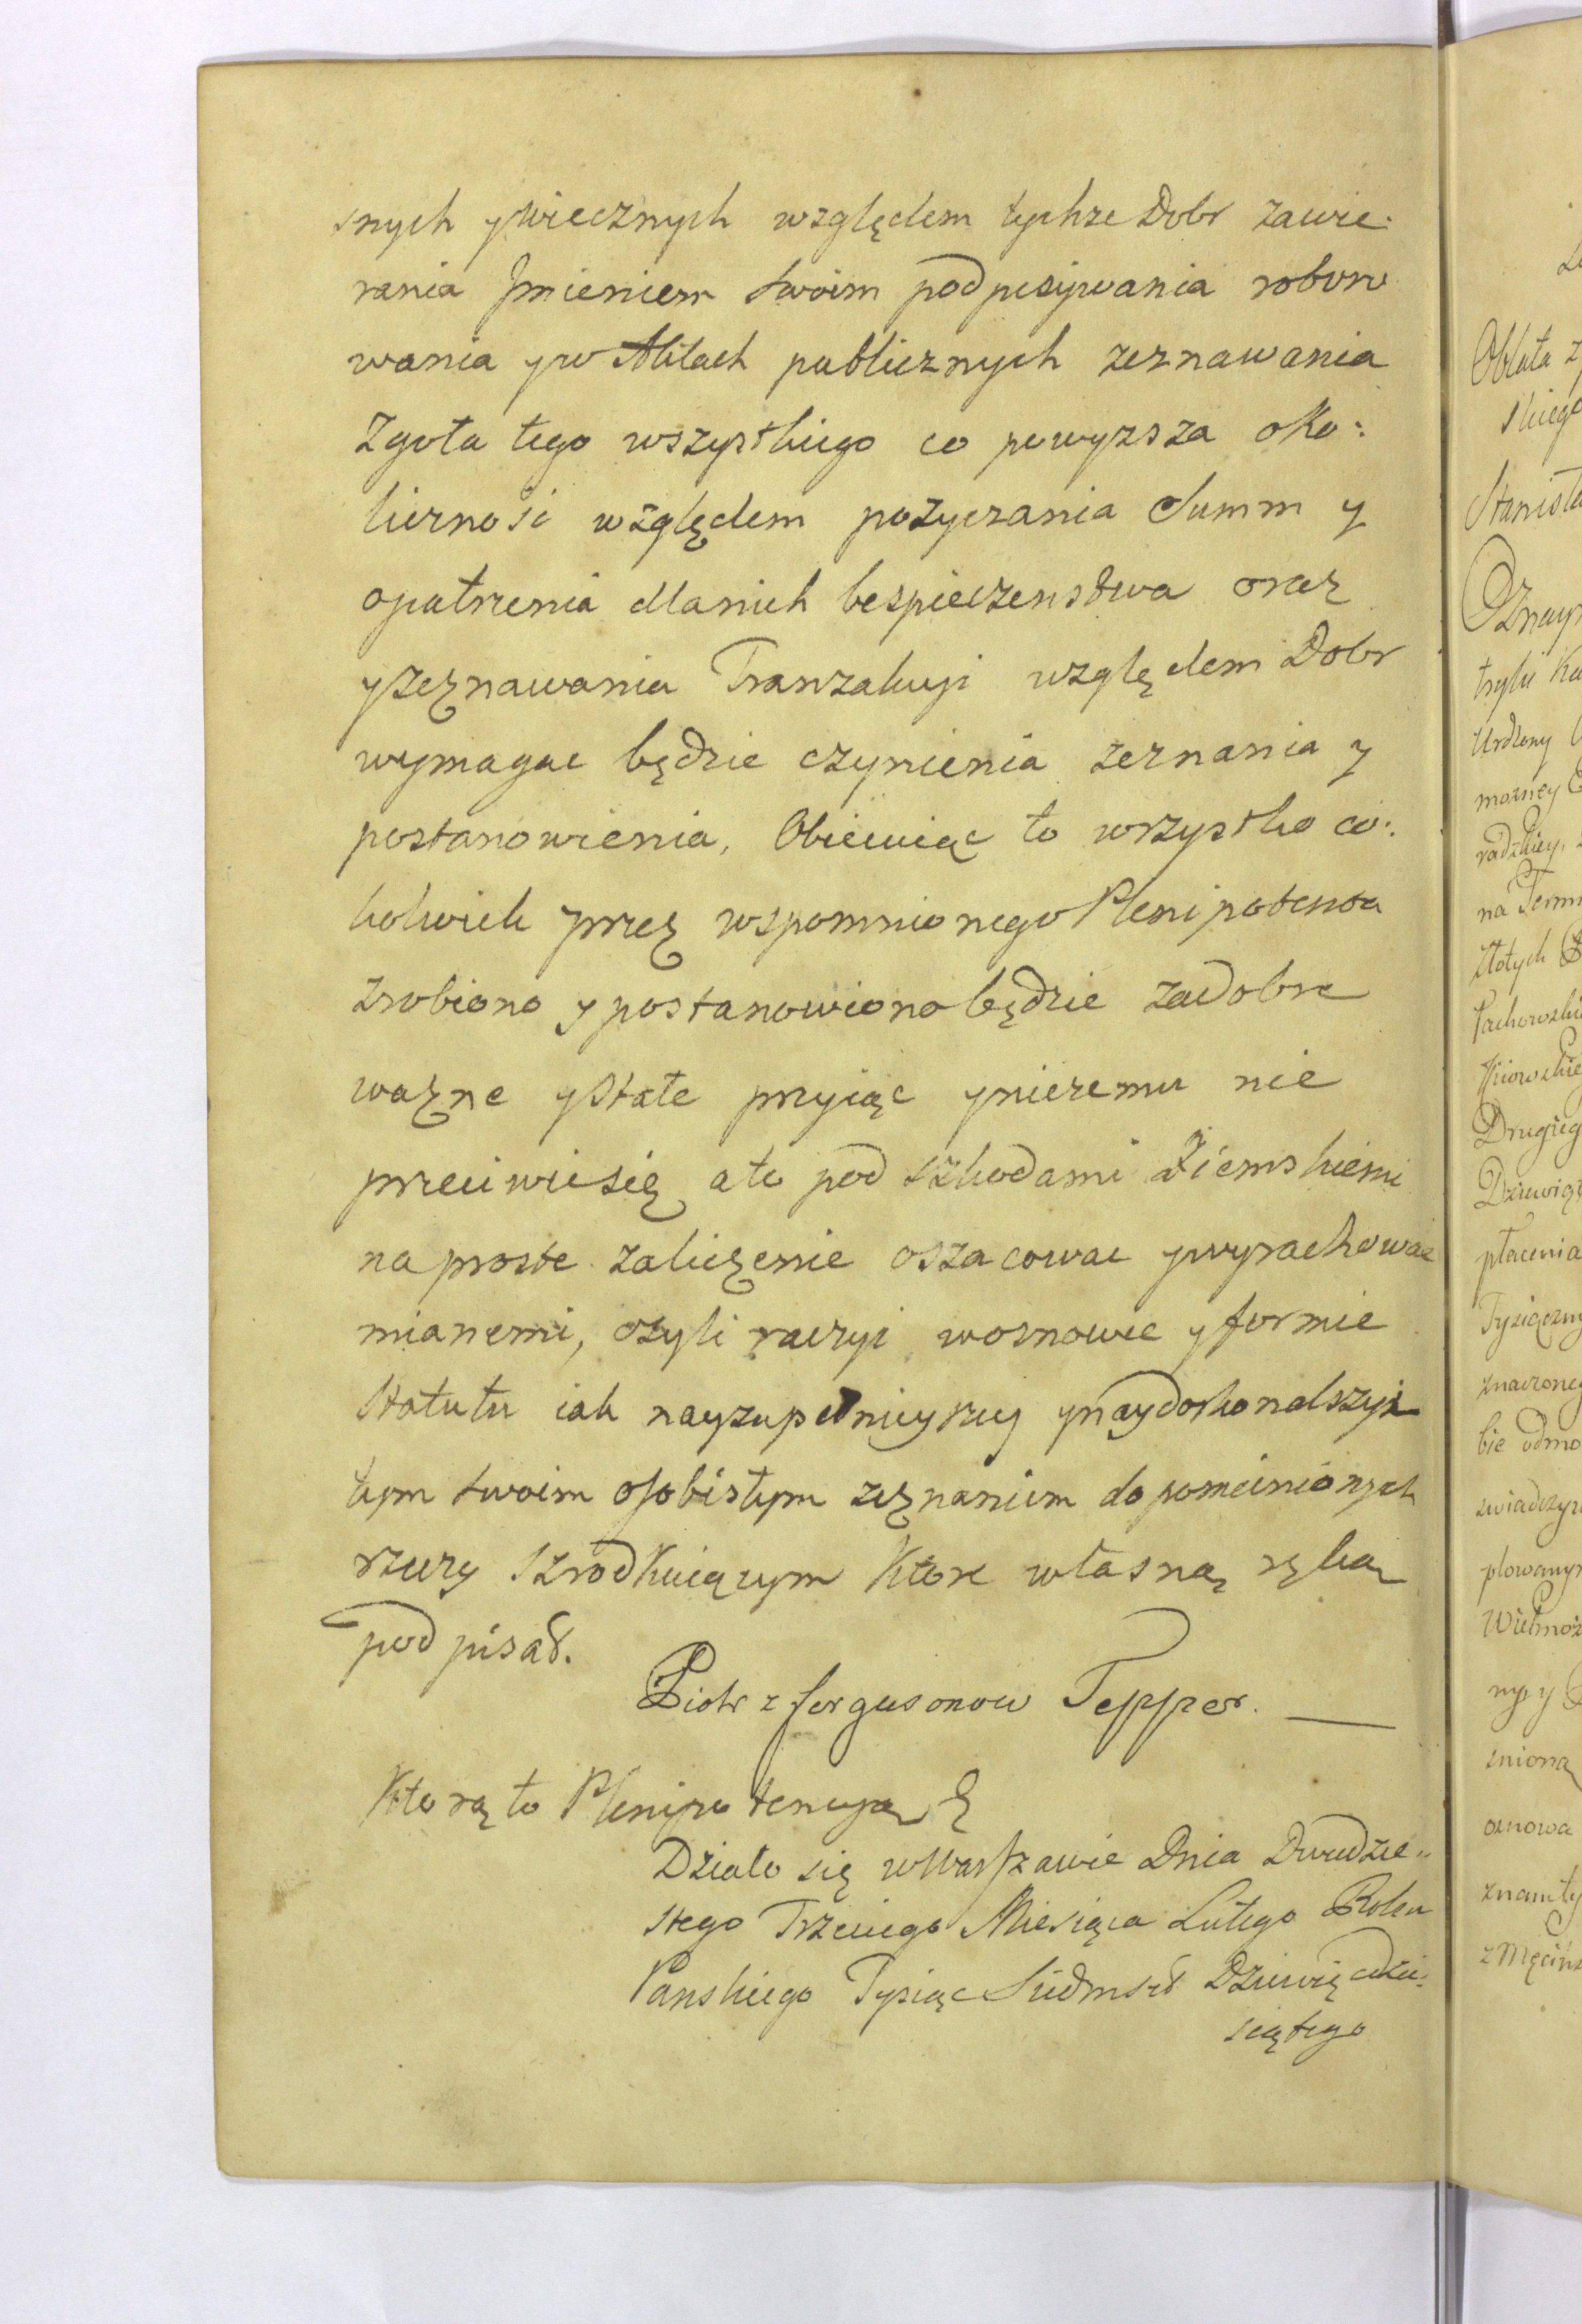 snych y wiecznych względem tychże Dobr zawie:
rania Jmieniem swoim podpisywania robor
wania y w Aktach publicznych zeznawania
Zgoła tego wszystkiego co powyzsza oko:
licznosc względem pozyczania Summ y
opatrzenia dla nich bespieczenstwa oraz
y zeznawania Tranzakcyi względem Dobr
wymagac będzie czynienia zeznania y
postanowienia, Obiecuiąc to wszystko co:
kolwiek przez wspomnionego Plenipotenta
zrobiono y postanowiono będzie za dobre
wazne y stałe przyiąc y niczemu nie
przeciwic się a to pod szkodami Ziemskiemi
na proste zaliczenie oszacowac y wyrachowac
mianemi, czyli raczyi w osnowie y formie
Statutu iak nayzupełnieyszey y naydoskonalszyi
tym swoim osobistym zeznaniem do pomienionych
rzeczy szrodkuiącym Ktore własną ręką
podpisał.
Piotr z fergusonow Tepper.
Ktorą to Plenipotencyą
Działo się w Warszawie Dnia Dwudzie:
stego Trzeciego Miesiąca Lutego Roku
Panskiego Tysiąc Siedmset Dziewięcdzie:
siątego
Oblata
Stanisła
Drugieg
płacenia